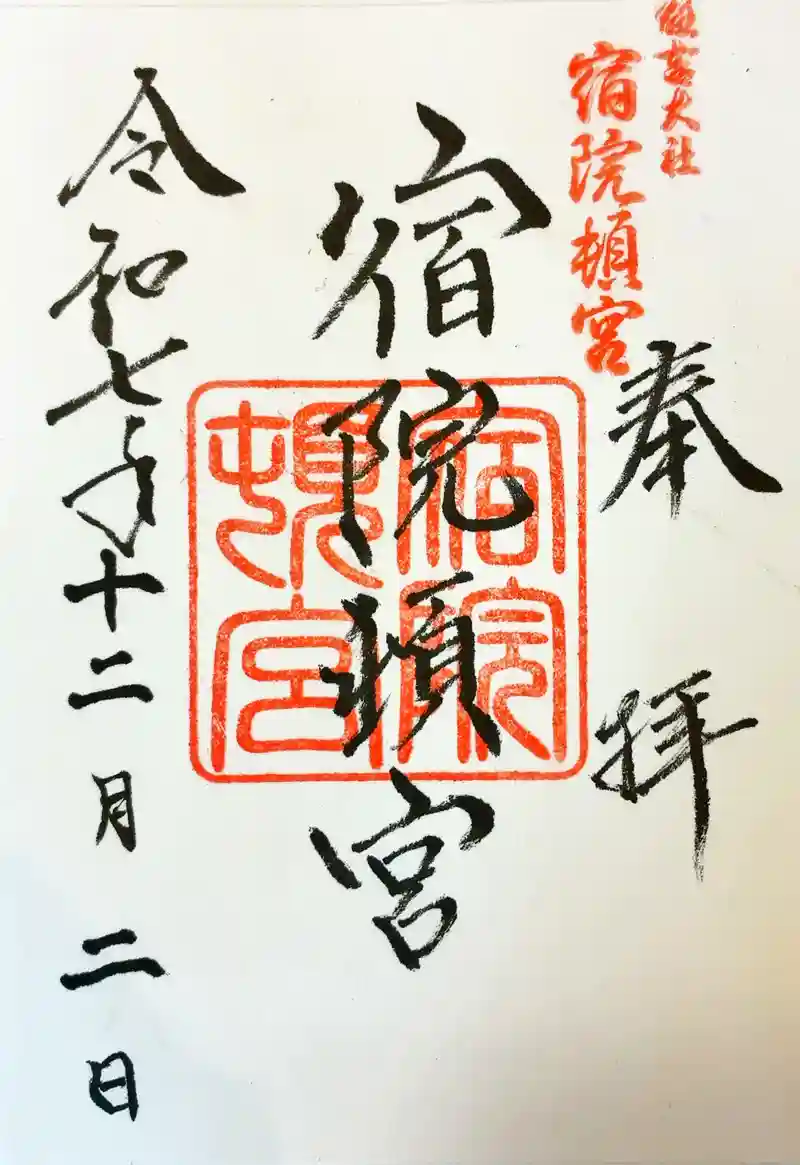 住吉大社
宿院頓宮
奉拝
宿院頓宮
宿院頓宮
令和七年十二月二日